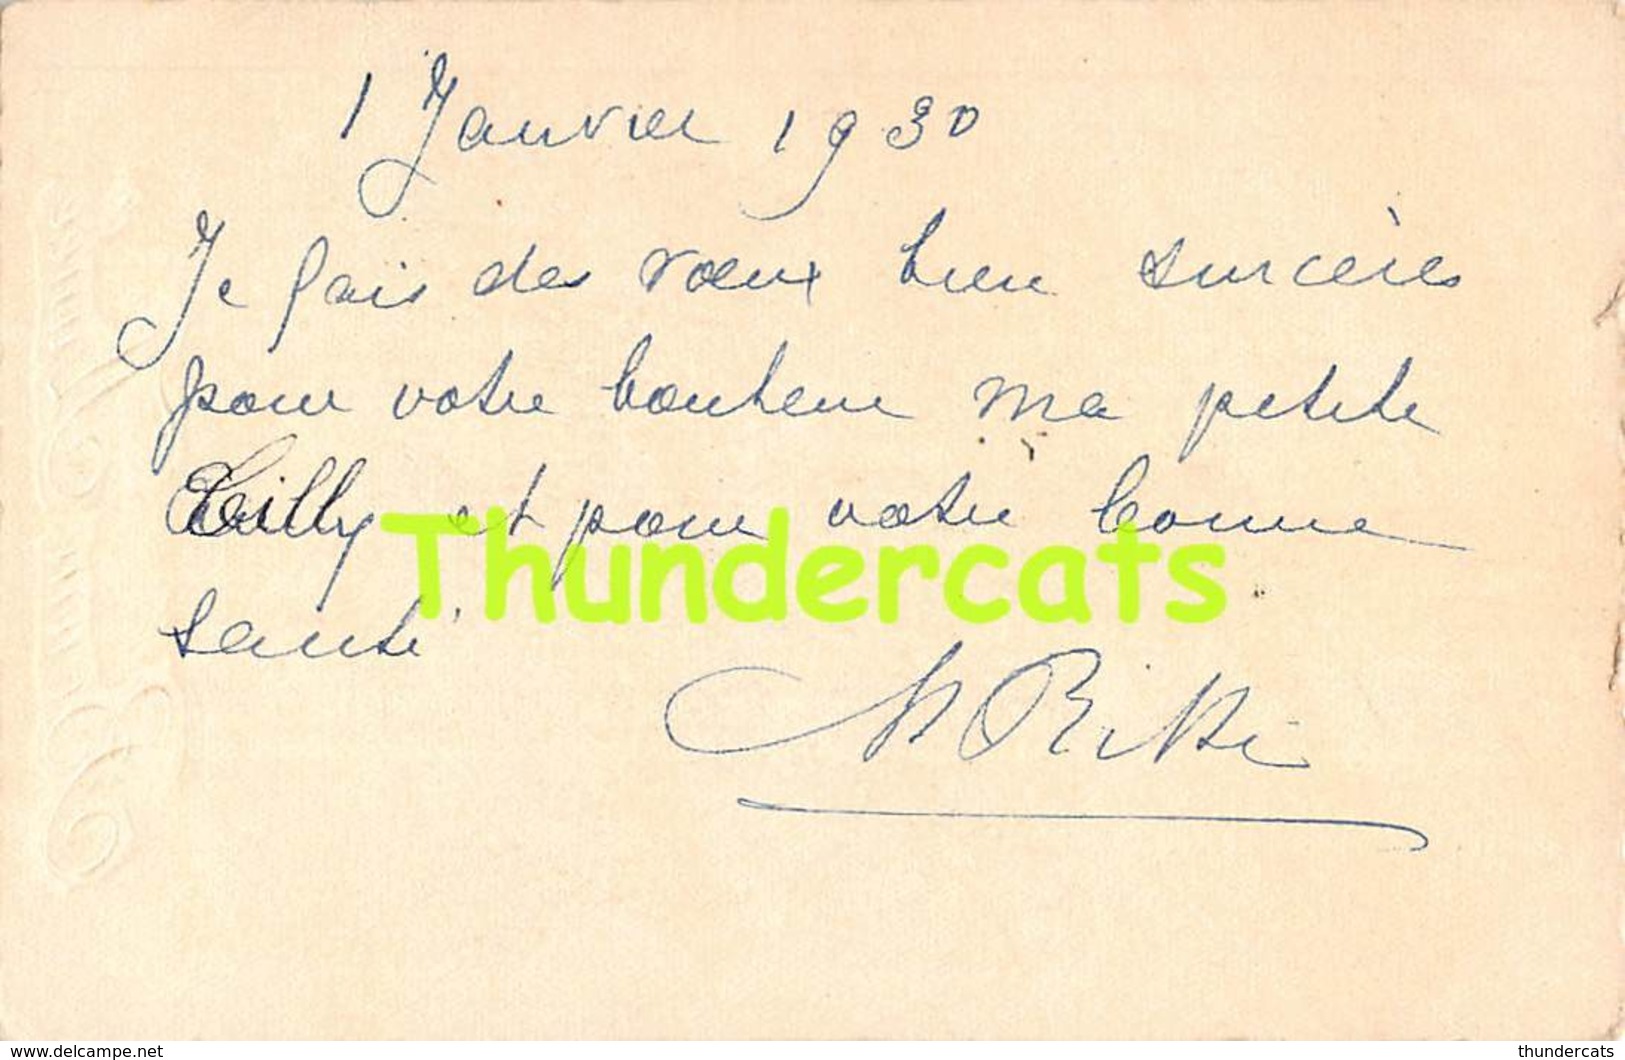 1 Janvier 1930
Je fais des vœux bien sincères
pour votre bonheur ma petite
et pour votre bonne
santé
Thundercats
www.delcampe.net
thundercats